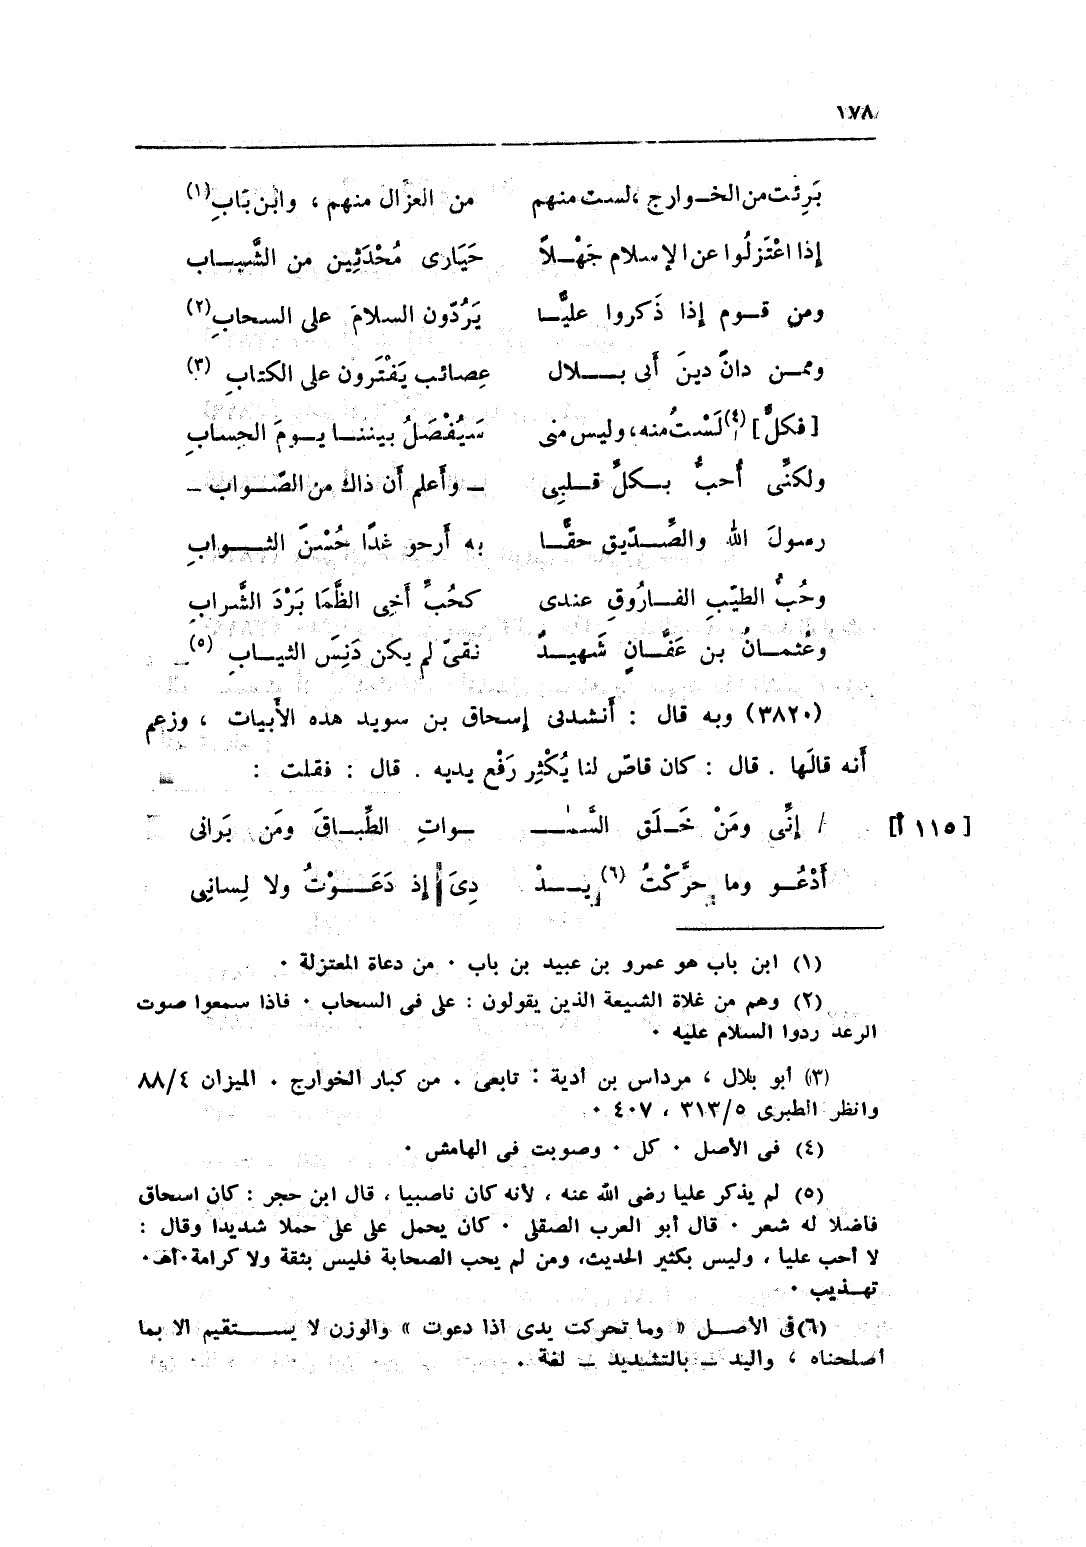 ١٧٨
بَرِئت من الخـوارج ، لست منهم من العزّال منهم ، وابن بَابِ(١)
إذا اعْتَزلُوا عن الإسلام جَهْـلاً حَيَارى مُحْدَثِين من الشَّبـاب
ومن قـوم إذا ذَكروا عليًّـا يَرُدّون السلامَ على السحابِ(٢)
وممـن دانَ دينَ أبى بــلال عصائب يَفْتَرون على الكتابِ (٣)
[ فكلٌّ ](٤) لَسْتُ منه، وليس منى سَيُفْصَلُ بيننـا يـومَ الحِسابِ
ولكنِّى أُحبُّ بـكلِّ قـلبِى ـ وأَعلم أَن ذاك من الصّـواب ـ
رسولَ الله والصِّـدّيق حقًّـا به أَرجو غدًا حُسْنَ الثـوابِ
وحُبُّ الطيّبِ الفـاروقِ عندى كحُبِّ أَخِى الظَّمَا بَرْدَ الشَّرابِ
وعُثمـانُ بن عَفَّـانٍ شَهيـدٌ نقىّ لم يكن دَنِسَ الثيـابِ (٥)
(٣٨٢٠) وبه قال : أَنشدنى إسحاق بن سويد هذه الأَبيات ، وزعم
أَنه قالَها . قال : كان قاصّ لنا يُكْثِر رَفْع يديه . قال : فقلت :
[ ١١٥ أ ] / إنِّى ومَنْ خَـلَق السَّمٰـ ـواتِ الطِّبـاقَ ومَن يَرانى
أَدْعُـو وما حرَّكْتُ (٦) يـدْ دِىَ إذ دَعَـوْتُ ولا لِسانِى
(١) ابن باب هو عمرو بن عبيد بن باب ٠ من دعاة المعتزلة ٠
(٢) وهم من غلاة الشيعة الذين يقولون : على فى السحاب ٠ فاذا سمعوا صوت
الرعد ردوا السلام عليه ٠
(٣) أبو بلال ، مرداس بن أدية : تابعى ٠ من كبار الخوارج ٠ الميزان ٨٨/٤
وانظر الطبرى ٣١٣/٥ ، ٤٠٧ ٠
(٤) فى الأصل ٠ كل ٠ وصوبت فى الهامش ٠
(٥) لم يذكر عليا رضى الله عنه ، لأنه كان ناصبيا ، قال ابن حجر : كان اسحاق
فاضلا له شعر ٠ قال أبو العرب الصقلى ٠ كان يحمل على على حملا شديدا وقال :
لا أحب عليا ، وليس بكثير الحديث، ومن لم يحب الصحابة فليس بثقة ولا كرامة٠أهـ٠
تهـذيب ٠
(٦) فى الأصـل « وما تحركت يدى اذا دعوت » والوزن لا يسـتقيم الا بما
أصلحناه ، واليد ـ بالتشديد ـ لغة ٠